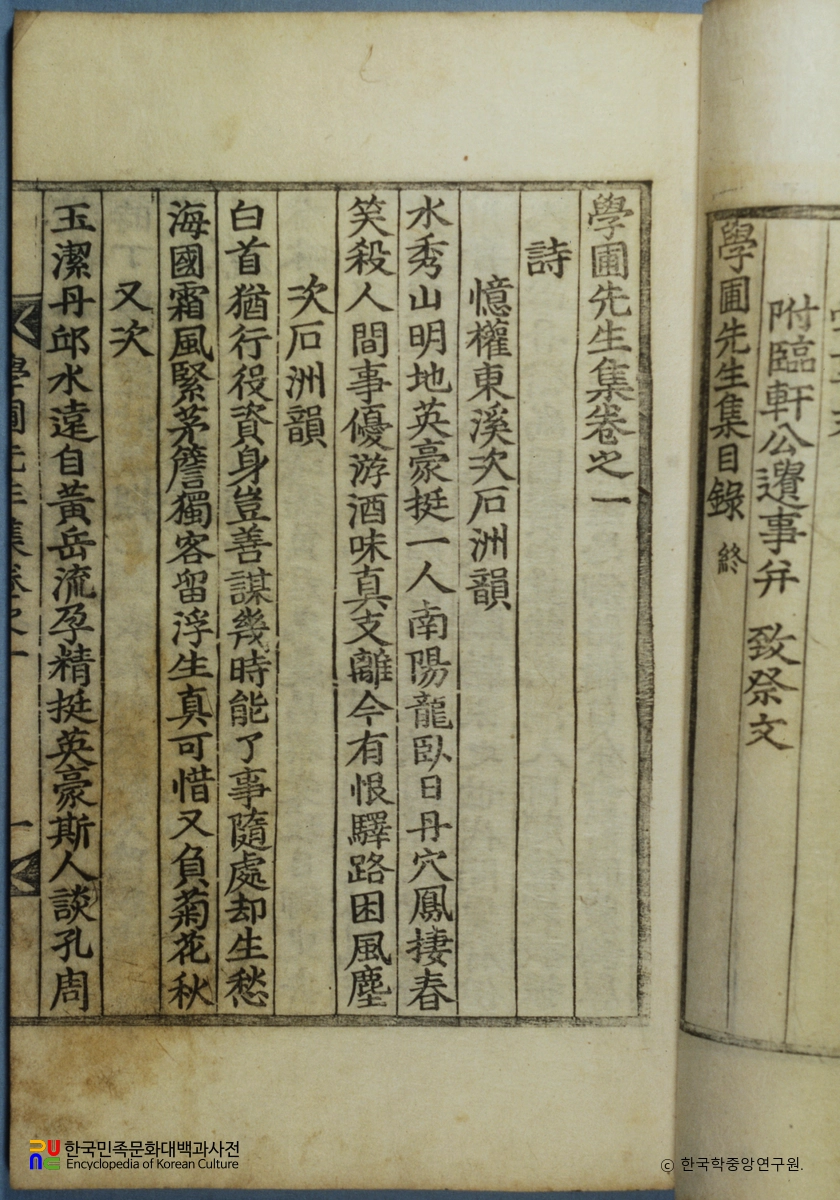 附臨軒公遺事幷 致祭文
學圃先生集目錄 終
學圃先生集卷之一
詩
憶權東溪次石洲韻
水秀山明地英豪挺一人南陽龍臥日丹穴鳳捿春
笑殺人間事優游酒味真支離今有恨驛路困風塵
次石洲韻
白首猶行役資身豈善謀幾時能了事隨處却生愁
海國霜風緊茅簷獨客留浮生真可惜又負菊花秋
又次
玉潔丹邱水遠自黃岳流孕精挺英豪斯人談孔周
學圃先生集卷之一
一
한국민족문화대백과사전
Encyclopedia of Korean Culture
ⓒ 한국학중앙연구원.